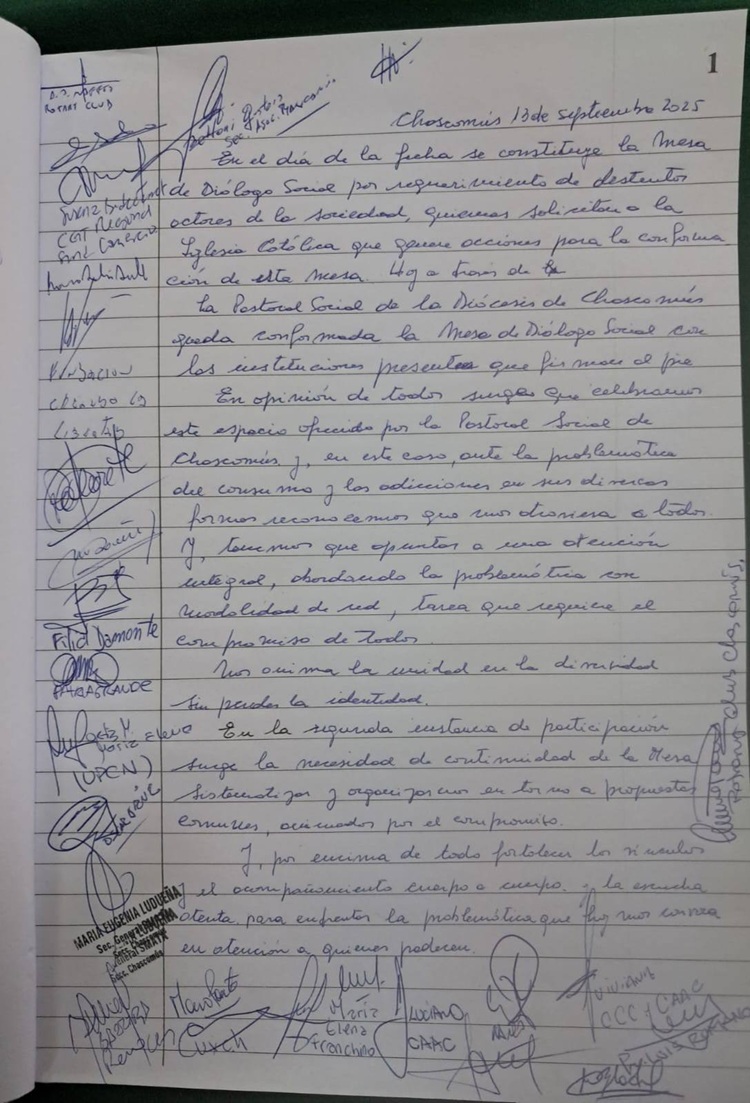 1
Chascomús 13 de septiembre 2025
En el día de la fecha se constituye la Mesa
de Diálogo Social por requerimiento de distintos
actores de la sociedad, quienes solicitan a la
Iglesia Católica que genere acciones para la conforma
ción de esta Mesa. Hoy a través de
La Pastoral Social de la Diócesis de Chascomús
queda conformada la Mesa de Diálogo Social con
las instituciones presentes que firman al pie
En opinión de todos surge que celebramos
este espacio ofrecido por la Pastoral Social de
Chascomús y, en este caso, ante la problemática
del consumo y las adicciones en sus diversas
formas reconocemos que nos atraviesa a todos.
Y, tenemos que apuntar a una atención
integral, abordando la problemática con
modalidad de red, tarea que requiere el
compromiso de todos.
Nos anima la unidad en la diversidad
sin perder la identidad.
En la segunda instancia de participación
surge la necesidad de continuidad de la Mesa
Sistematizar y organizarnos en torno a propuestas
comunes, animados por el compromiso.
Y, por encima de todo fortalecer los vínculos
y el acompañamiento cuerpo a cuerpo y la escucha
atenta para enfrentar la problemática que hoy nos convoca
en atención a quienes padecen.
ROTARY CLUB
CGT Regional
Fundación
Filid Damonte
(UPCN)
MARIA EUGENIA LUDUEÑA
Sec. General
Secc. Chascomús
María
Elena
Franchino
LUCIANO
CAAC
VIVIANA
CCC y CAAC